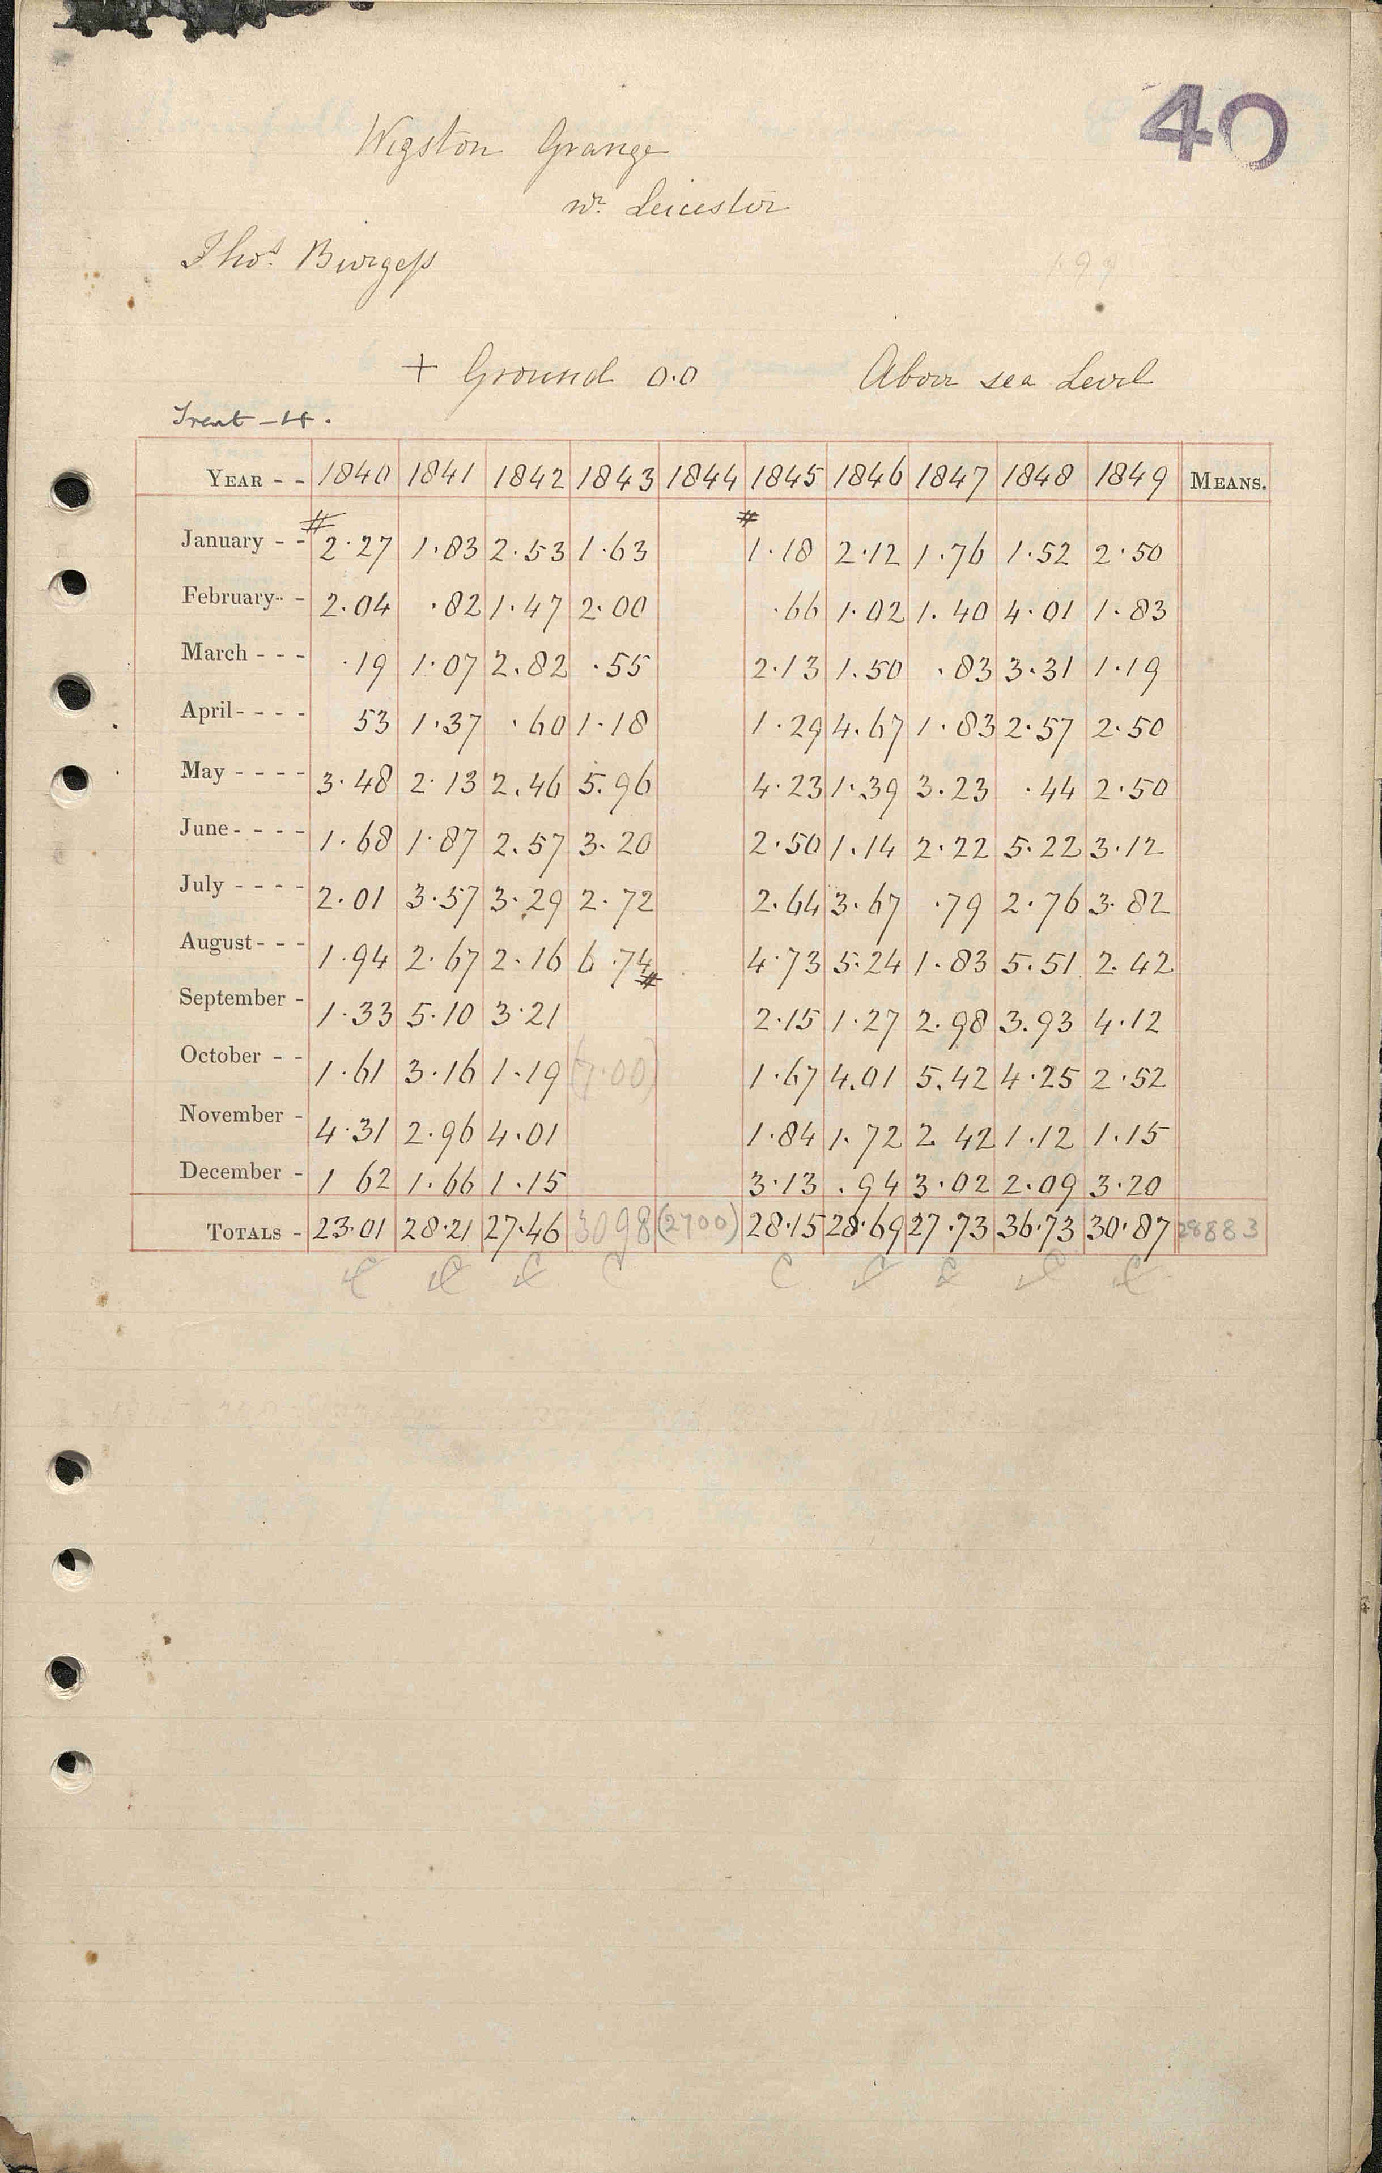 40
Wigston Grange
nr. Leicester
Thos. Burgess
+ Ground 0.0 Above sea Level
Trent - 4.
YEAR - - 1840 1841 1842 1843 1844 1845 1846 1847 1848 1849 MEANS.
# #
January - - 2.27 1.83 2.53 1.63 1.18 2.12 1.76 1.52 2.50
February - - 2.04 .82 1.47 2.00 .66 1.02 1.40 4.01 1.83
March - - - .19 1.07 2.82 .55 2.13 1.50 .83 3.31 1.19
April - - - - 53 1.37 .60 1.18 1.29 4.67 1.83 2.57 2.50
May - - - - 3.48 2.13 2.46 5.96 4.23 1.39 3.23 .44 2.50
June - - - - 1.68 1.87 2.57 3.20 2.50 1.14 2.22 5.22 3.12
July - - - - 2.01 3.57 3.29 2.72 2.64 3.67 .79 2.76 3.82
August - - - 1.94 2.67 2.16 6.74 # 4.73 5.24 1.83 5.51 2.42
September - 1.33 5.10 3.21 2.15 1.27 2.98 3.93 4.12
October - - 1.61 3.16 1.19 (7.00) 1.67 4.01 5.42 4.25 2.52
November - 4.31 2.96 4.01 1.84 1.72 2 42 1.12 1.15
December - 1 62 1.66 1.15 3.13 .94 3.02 2.09 3.20
TOTALS - 23.01 28.21 27.46 3098 (2700) 28.15 28.69 27.73 36.73 30.87 28883